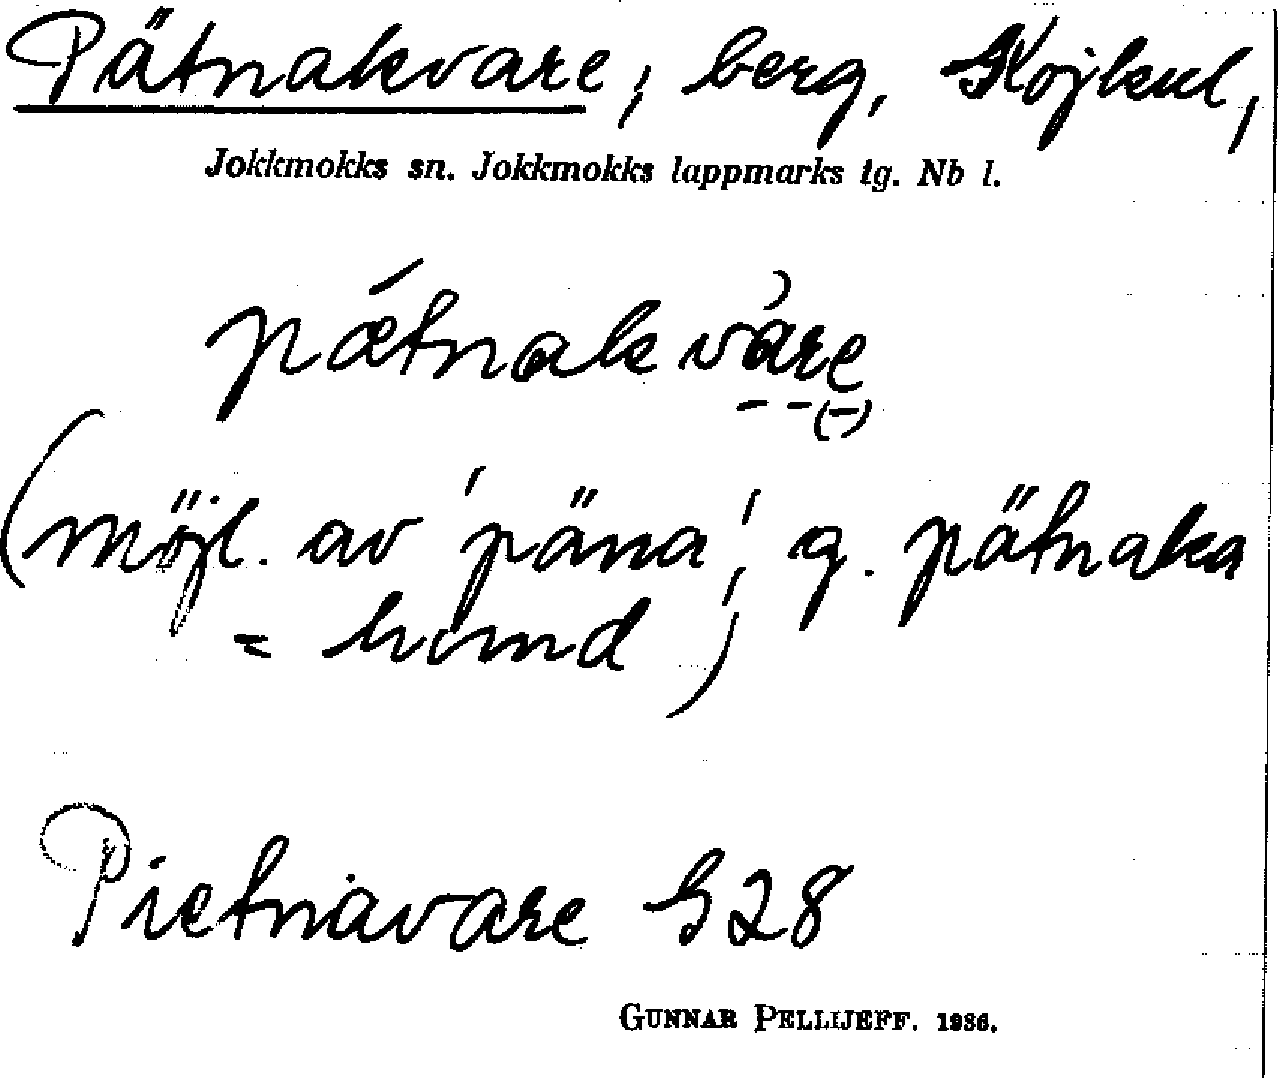 Pätnakvare, berg, Kojkul,
Jokkmokks sn. Jokkmokks lappmarks tg. Nb l.
pǽtnakvàre
(möjl. av 'päna', g. pätnaka
= hund)
Pietnavare G28
GUNNAR PELLIJEFF. 1936.